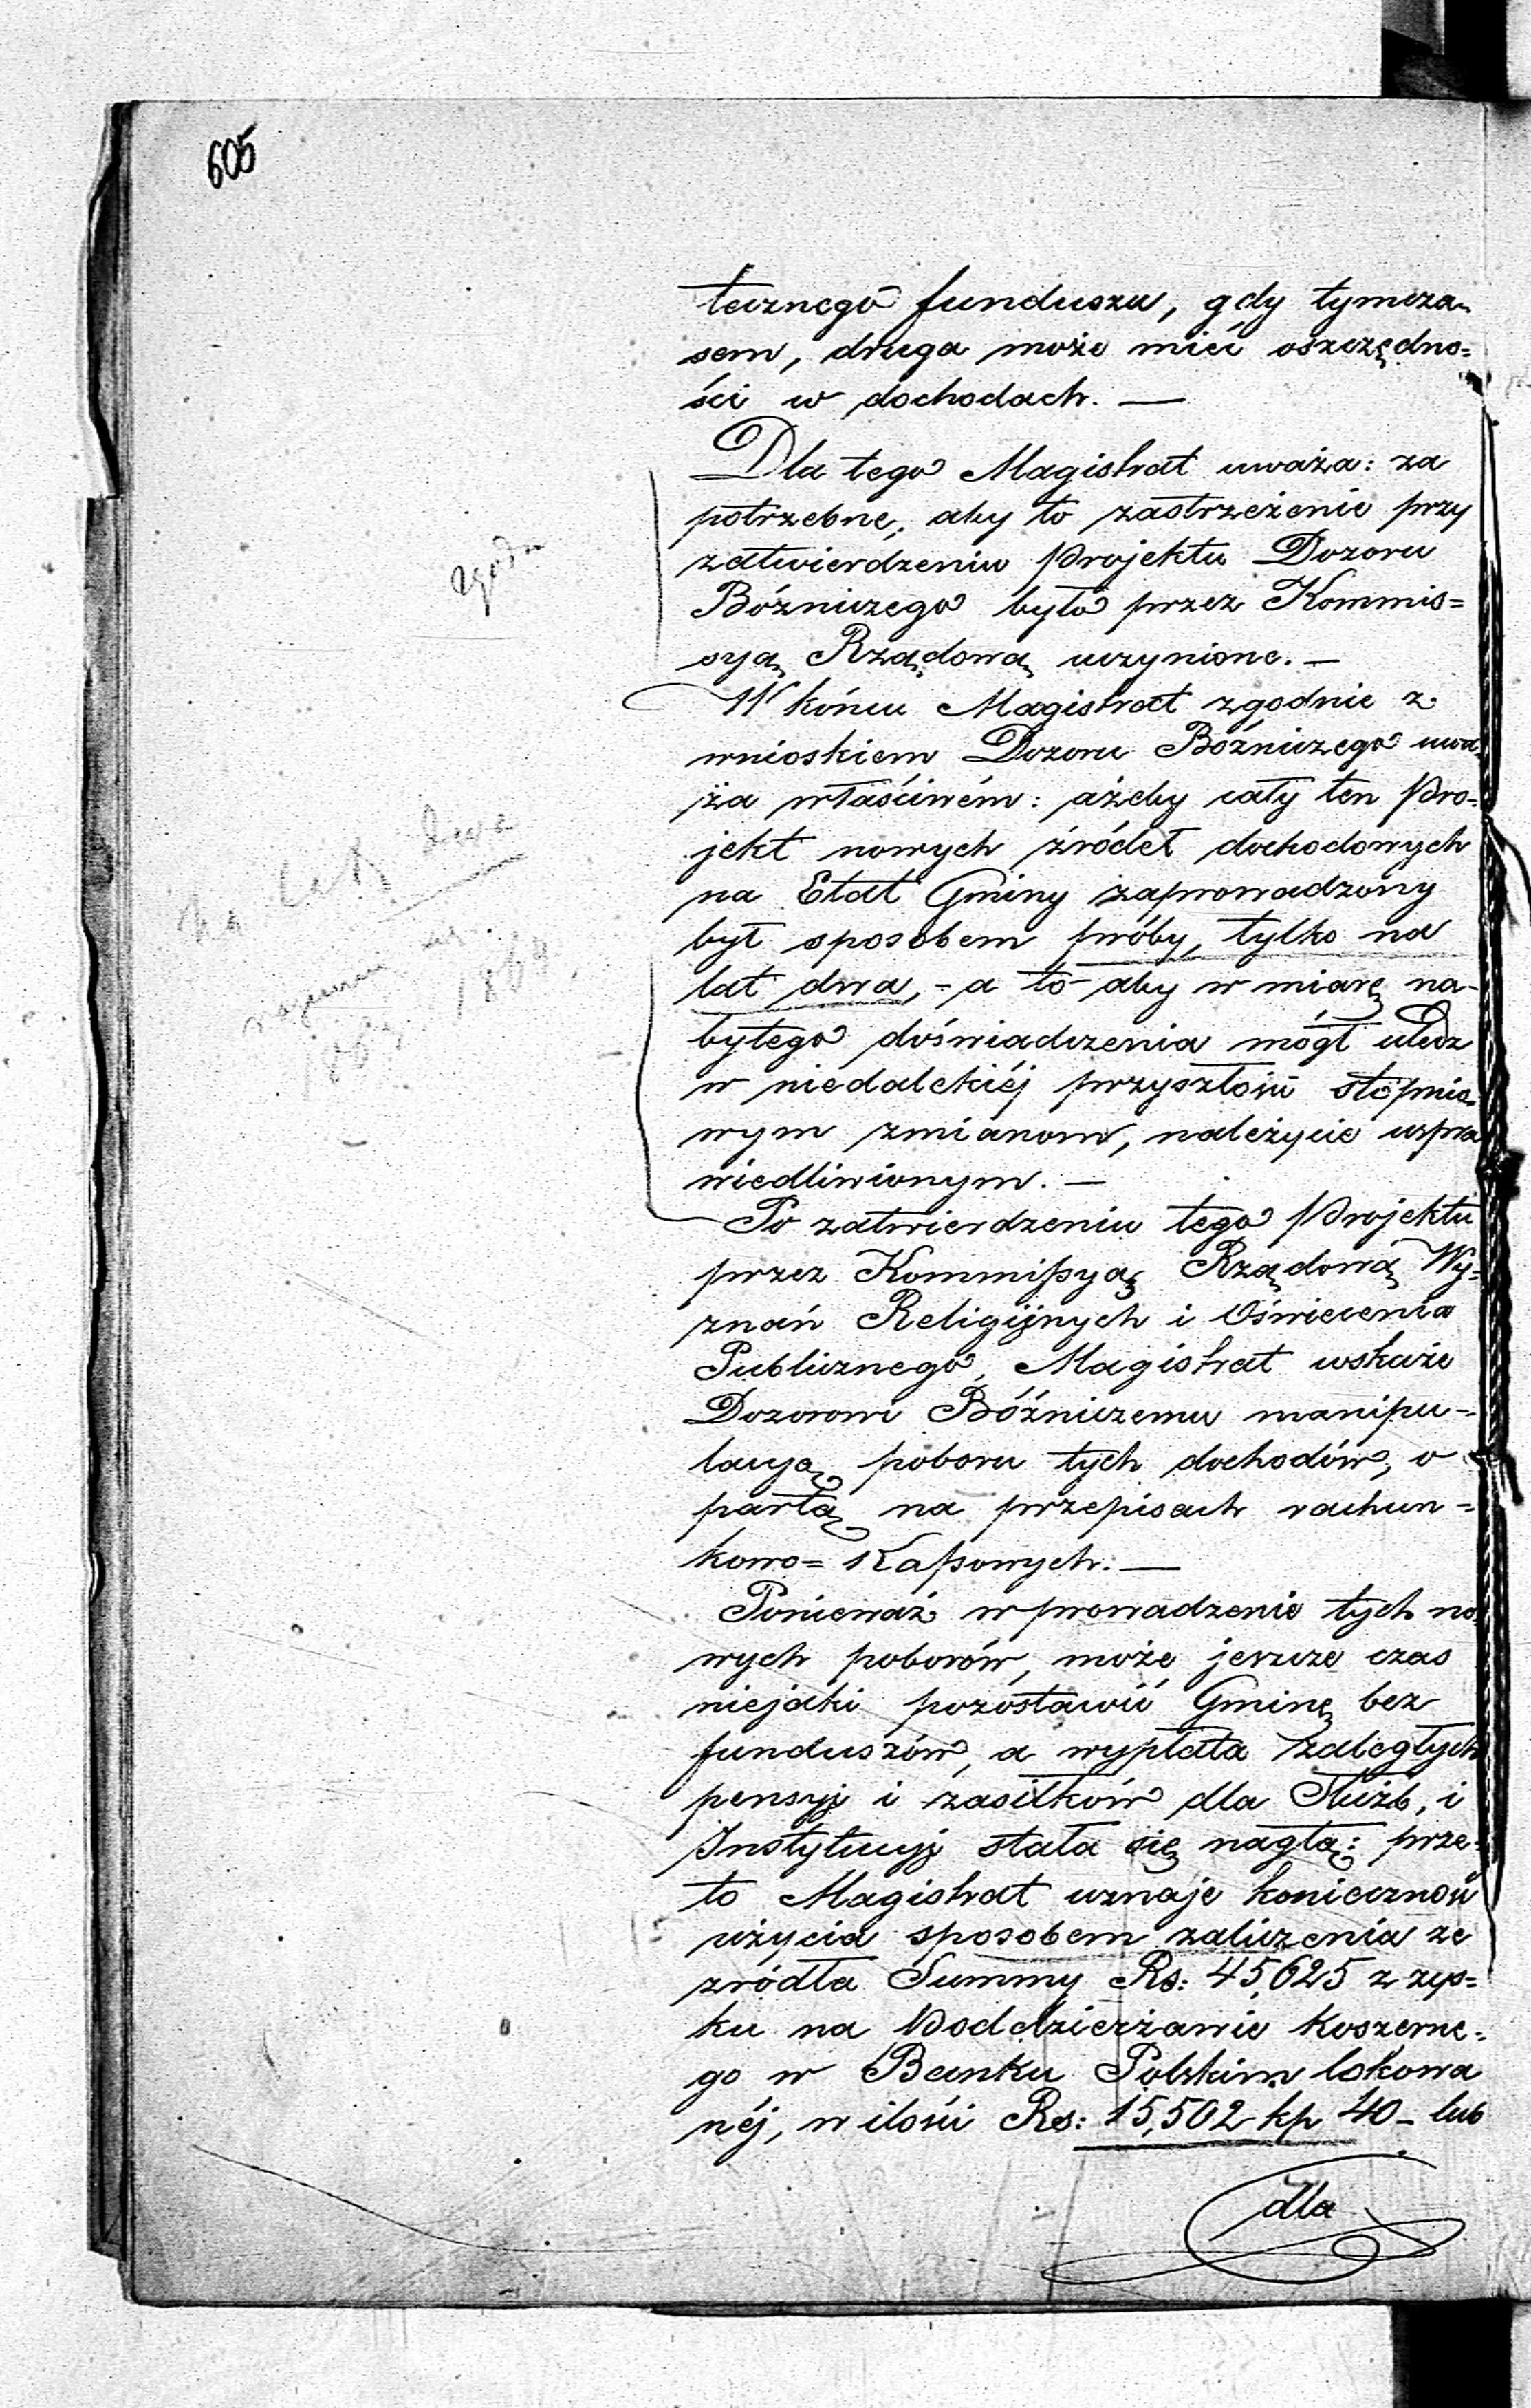 605
tecznego funduszu, gdy tymcza-
sem, druga może mieć oszczędno=
ści w dochodach. —
Dla tego Magistrat uważa: za
potrzebne, aby to zastrzeżenie przy
zatwierdzeniu Projektu Dozoru
Bózniczego było przez Kommis=
syą Rządową uczynione. —
zgoda
W końcu Magistrat zgodnie z
wnioskiem Dozoru Bóźniczego uwa-
ża właściwém: ażeby cały ten Pro-
jekt nowych źródeł dochodowych
na Etat Gminy zaprowadzony
był sposobem próby, tylko na
lat dwa, - a to aby w miarę na-
bytego doświadczenia mógł uledz
w niedalekiéj przyszłości stopnio-
wym zmianom, należycie uspra
wiedliwionym. —
na lat dwa
1864
Po zatwierdzeniu tego Projektu
przez Kommißyą Rządową Wy=
znań Religijnych i Oświecenia
Publicznego, Magistrat wskaże
Dozorowi Bóżniczemu manipu-
lacyą poboru tych dochodów, o
partą na przepisach rachun-
kowo=Kaßowych. —
Ponieważ wprowadzenie tych no-
wych poborów, może jeszcze czas
niejaki pozostawić Gminę bez
funduszów, a wypłata zaległych
pensyj i zasiłków dla Służb, i
Instytucyj stała się nagłą: prze-
to Magistrat uznaje konieczność
użycia sposobem zaliczenia ze
zródła Summy Rs: 45,625 z zys=
ku na Poddzierżawie koszerne-
go w Banku Polskim lokowa
néj, w ilości Rs: 15,502 kp 40 - lub
dla